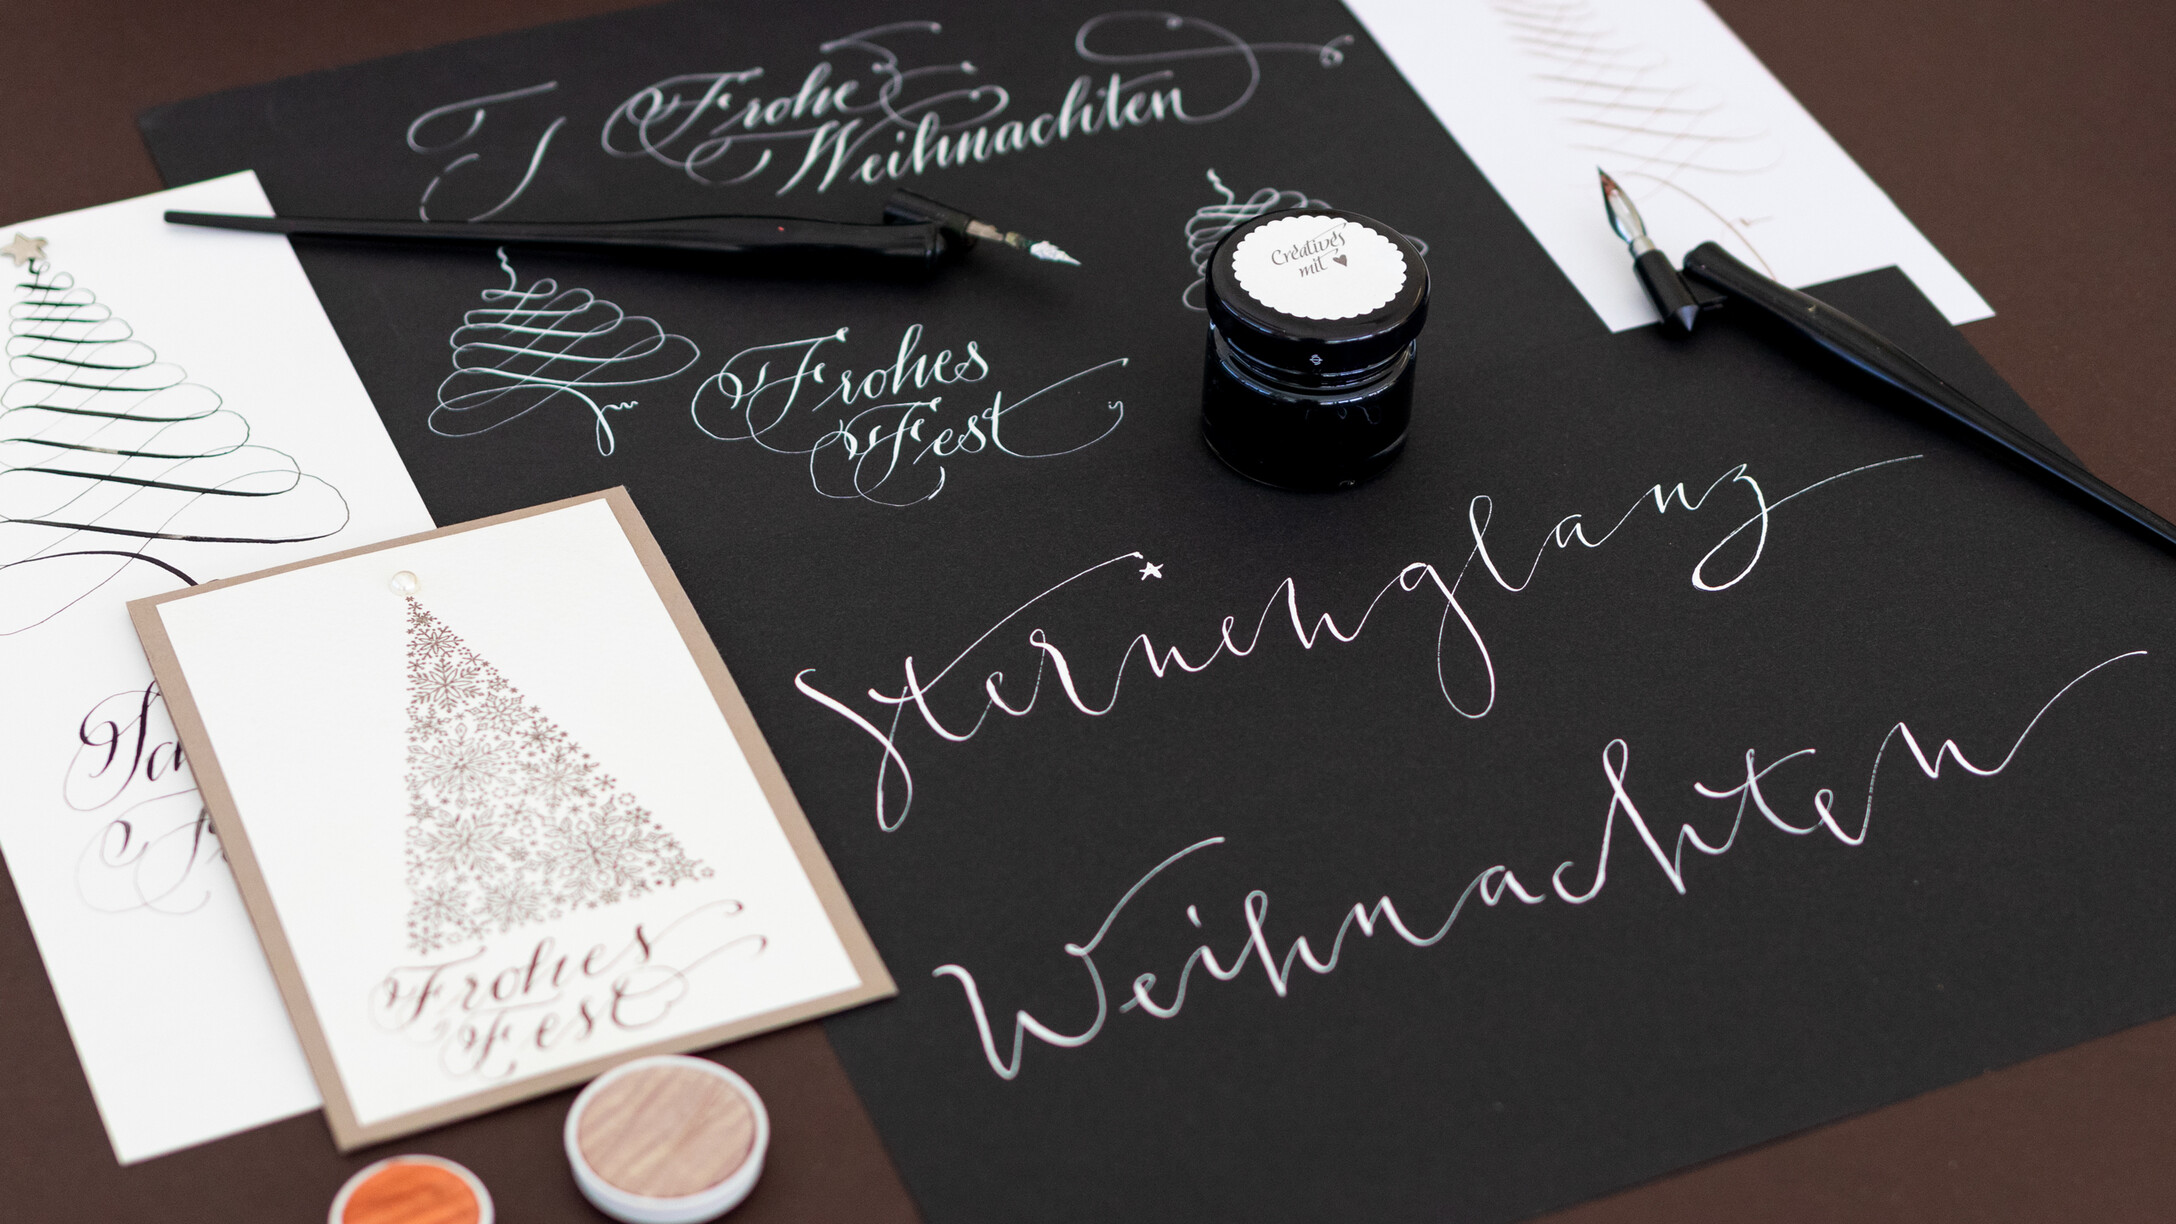 Frohe
Weihnachten
Creatives
mit ♥
Frohes
Fest
Sternenglanz
Weihnachten
Frohes
Fest